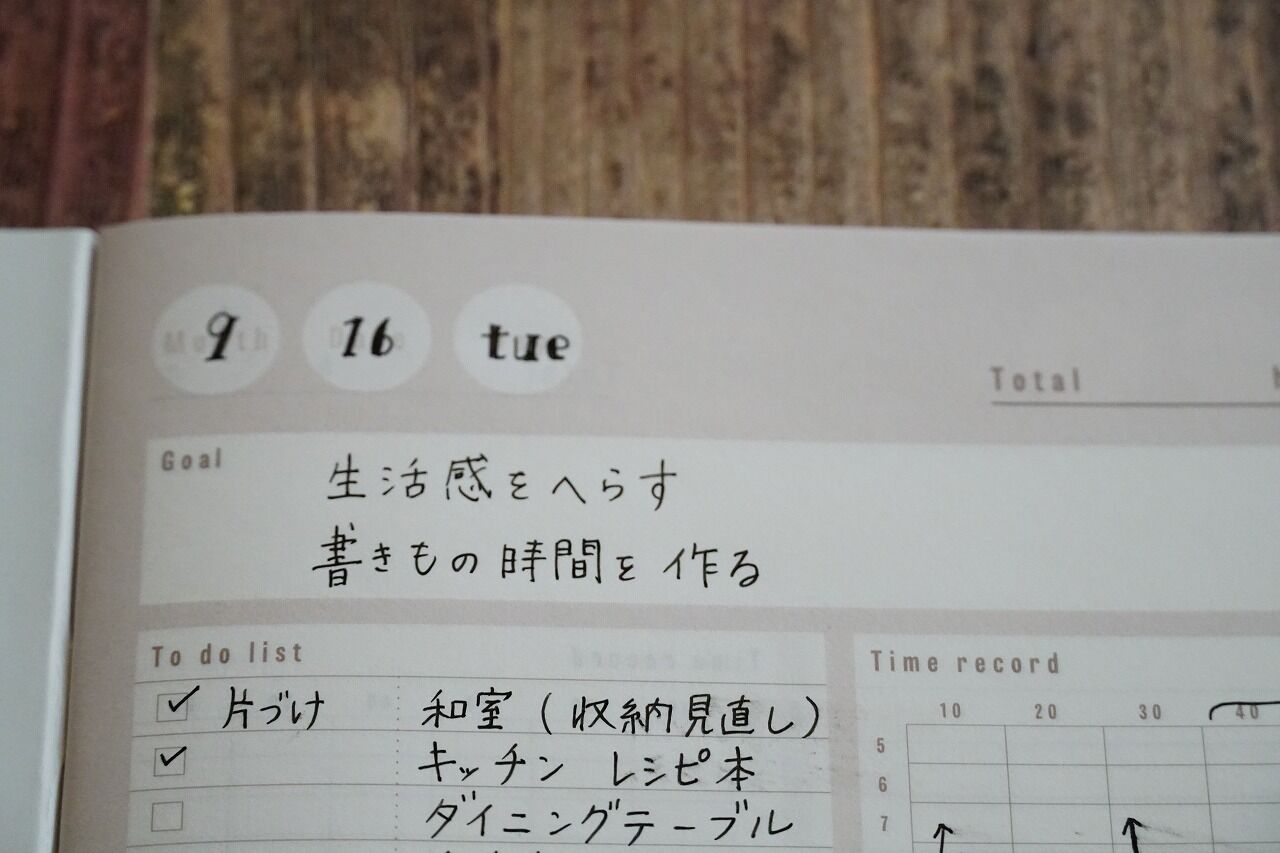 9 16 tue
Total
Goal
生活感をへらす
書きもの時間を作る
To do list
片づけ 和室(収納見直し)
キッチン レシピ本
ダイニングテーブル
Time record
10 20 30 40
5
6
7